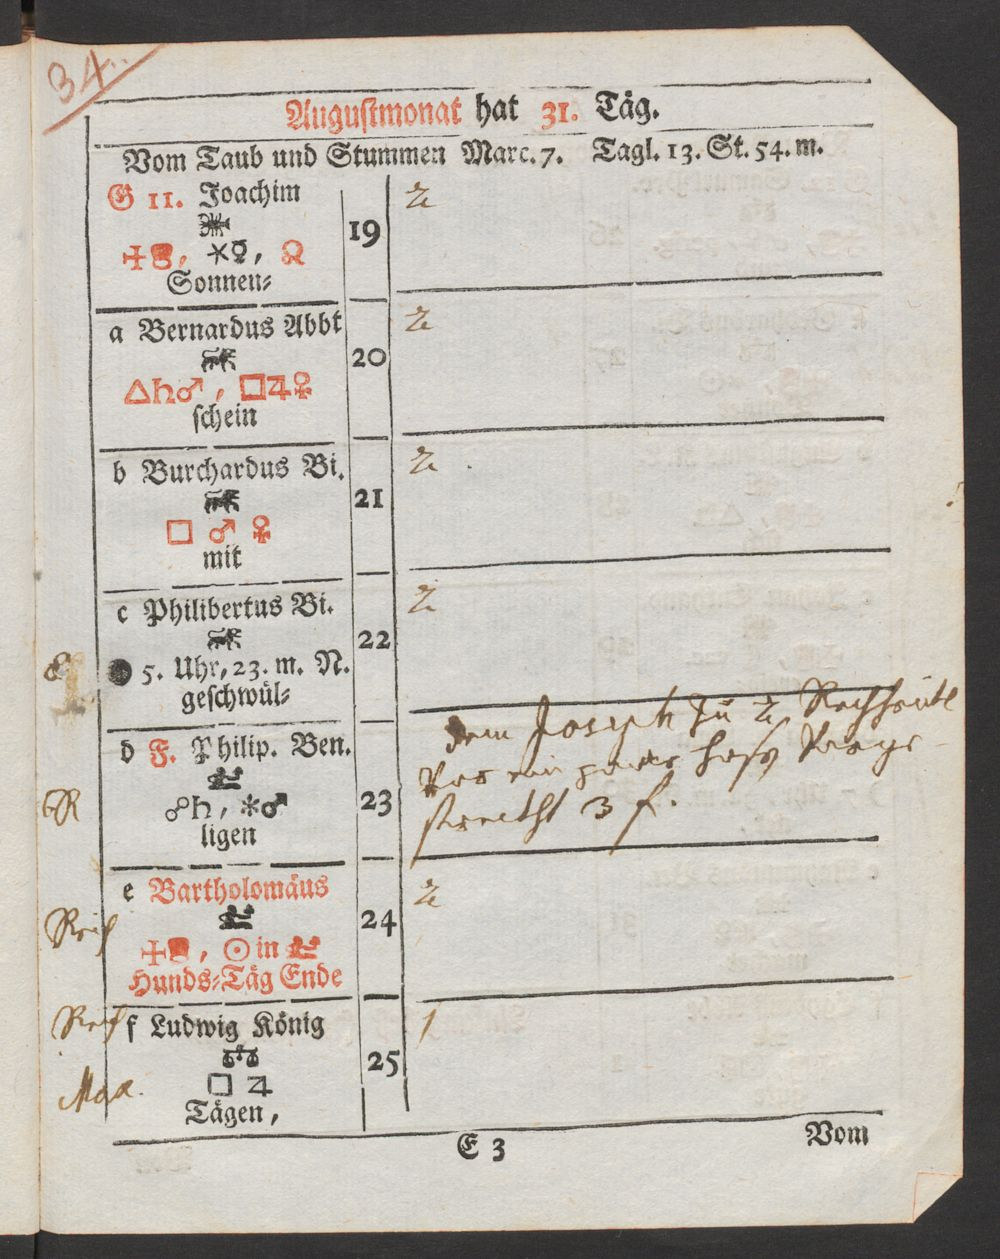 34.
Augustmonat hat 31. Täg.
Vom Taub und Stummen Marc. 7. Tagl. 13. St. 54. m.
G 11. Joachim
19
2
♋
☌, ⚹☿, ☊
Sonnen⸗
a Bernardus Abbt
20
2
♌
△♄♂, □♃♀
schein
b Burchardus Bi.
21
2
♌
□ ♂ ♀
mit
c Philibertus Bi.
22
2
♌
● 5. Uhr, 23. m. N.
geschwül⸗
d F. Philip. Ben.
23
dem Joseph zu
3 f.
♍
☍♄, ⚹♂
ligen
e Bartholomäus
24
2
♍
☉ in ♍
Hunds⸗Täg Ende
f Ludwig König
25
1
♎
□ ♃
Max.
Tägen,
E 3
Vom